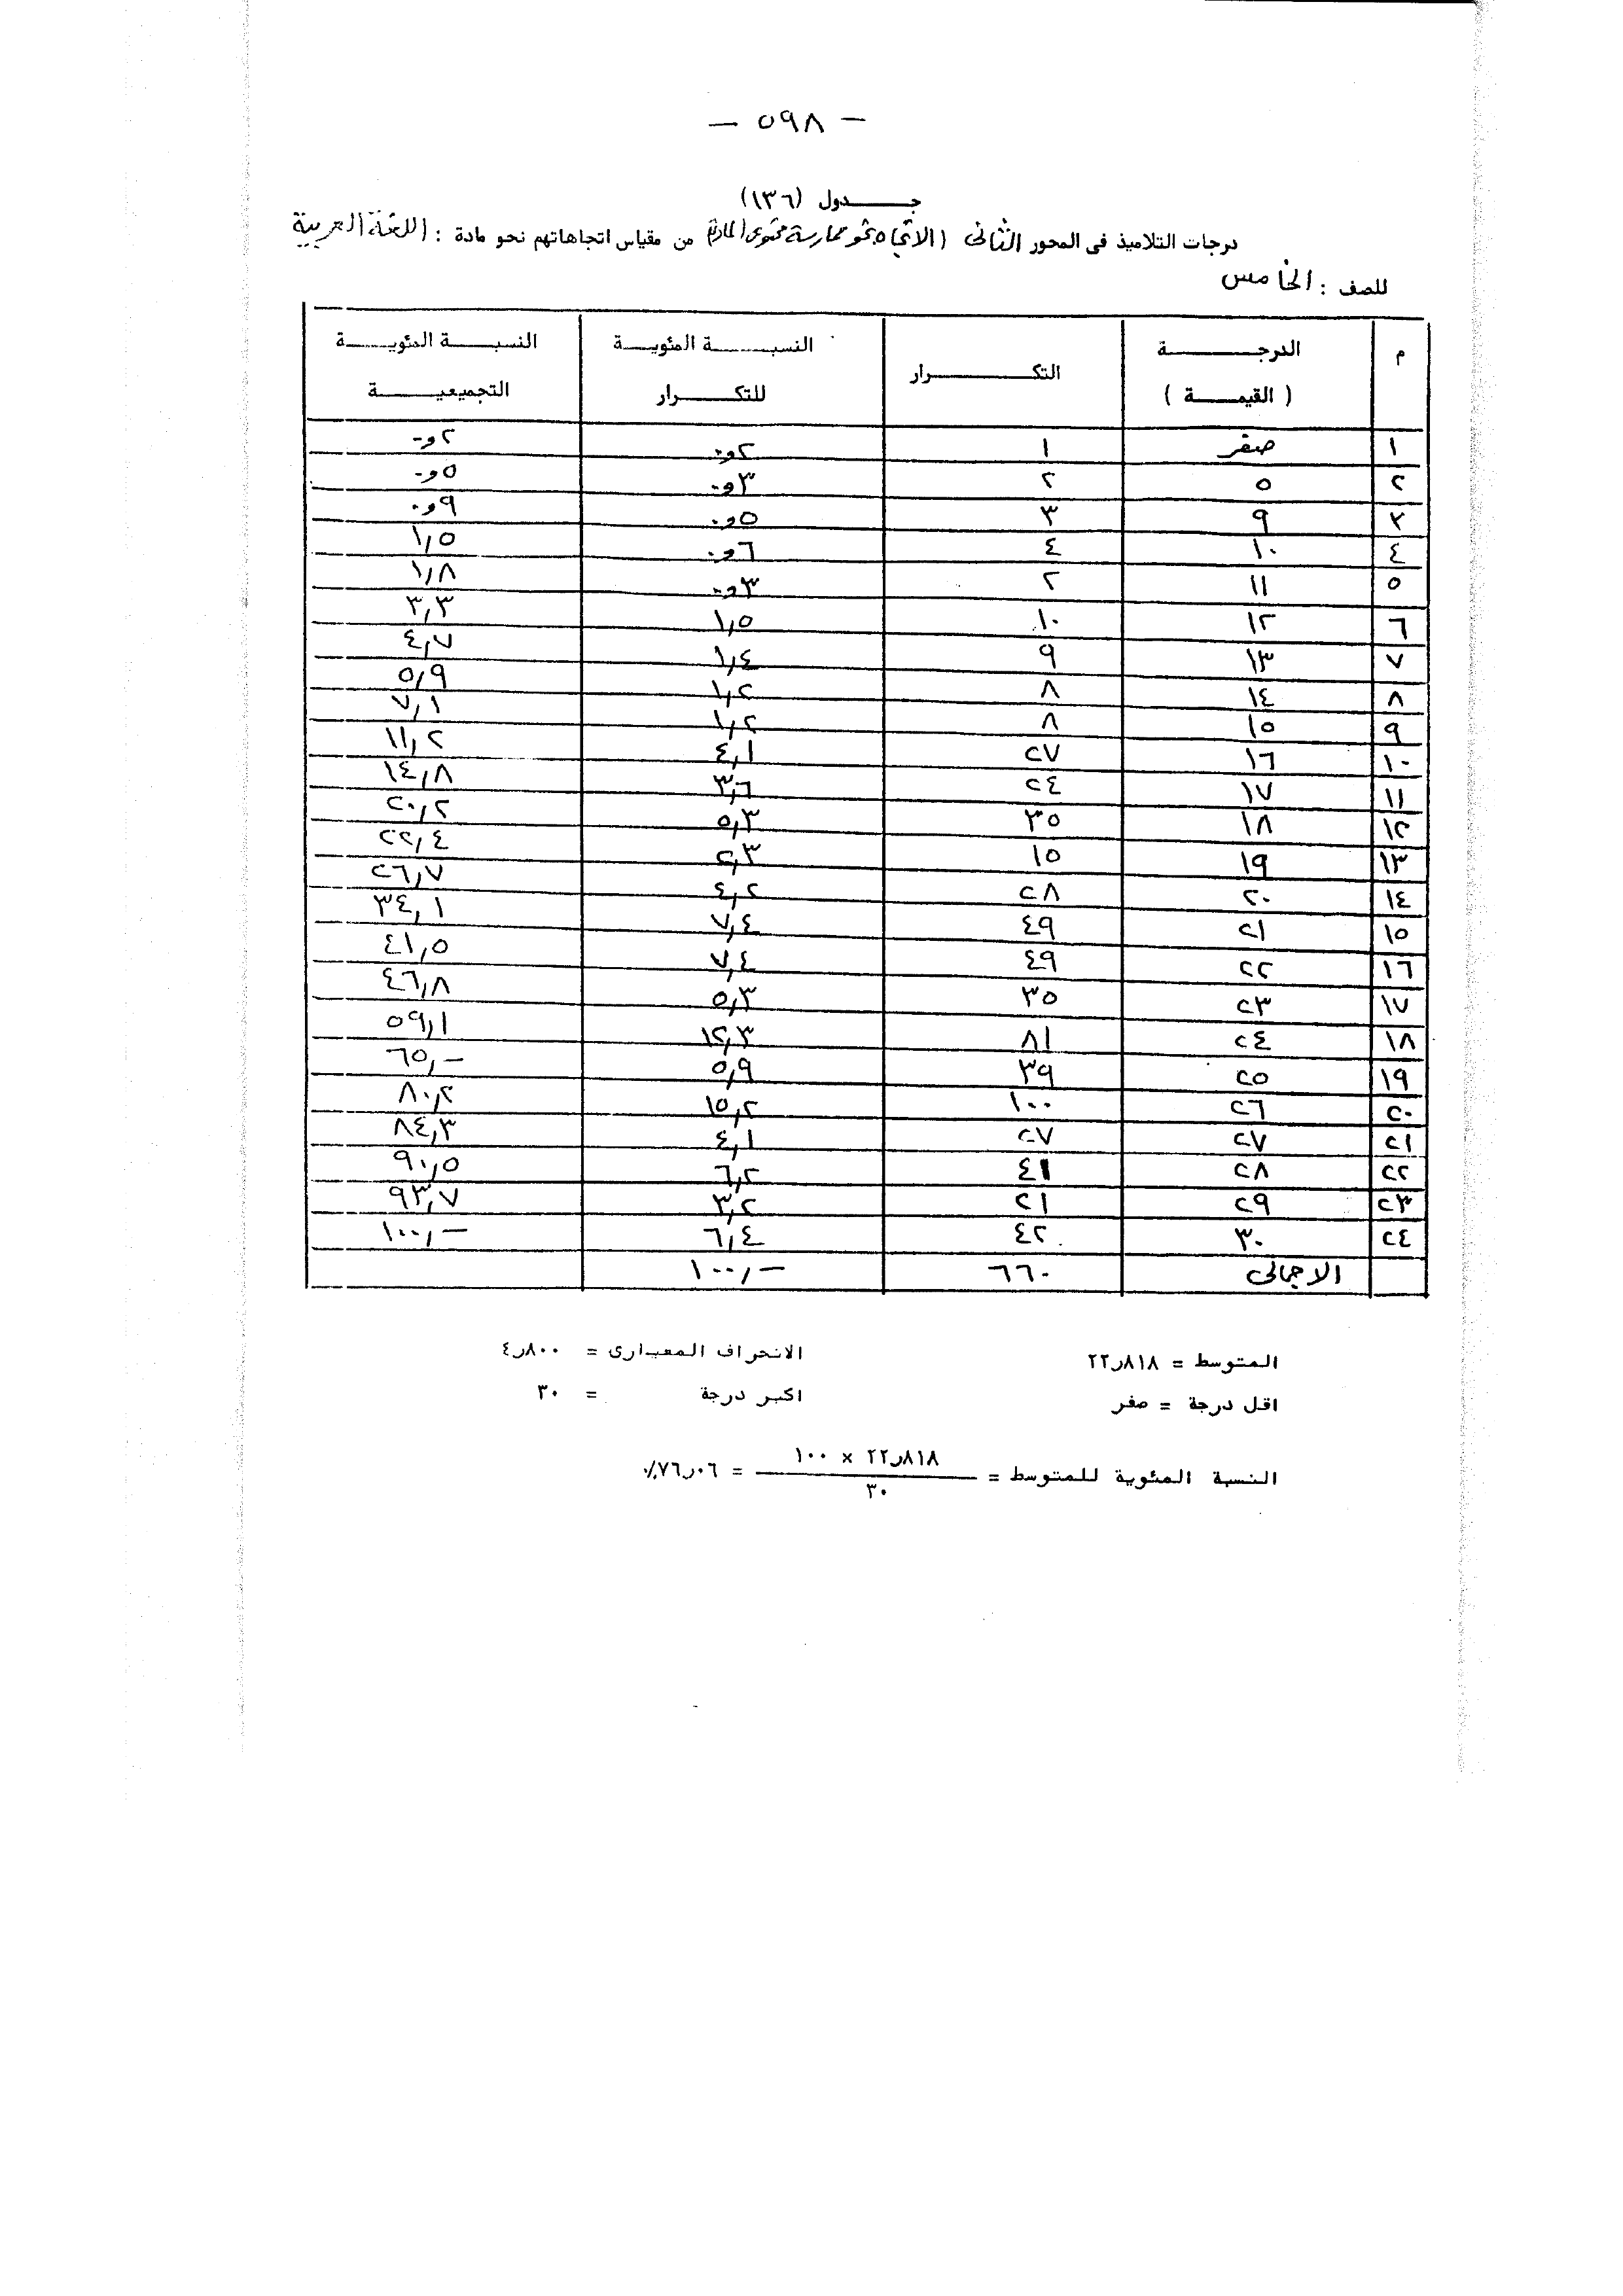 — ٥٩٨ —
جـــدول (١٣٦)
درجات التلاميذ فى المحور الثانى (الاتجاه نحو ممارسة محتوى المادة) من مقياس اتجاهاتهم نحو مادة : اللغة العربية
للصف : الخامس
م الدرجـــة (القيمـــة) التكـــرار النسبـــة المئويـــة للتكـــرار النسبـــة المئويـــة التجميعيـــة
١ صفر ١ ٢و٠ ٢و-
٢ ٥ ٢ ٣و٠ ٥و-
٣ ٩ ٣ ٥و٠ ٩و٠
٤ ١٠ ٤ ٦و٠ ١,٥
٥ ١١ ٢ ٣و٠ ١,٨
٦ ١٢ ١٠ ١,٥ ٣,٣
٧ ١٣ ٩ ١,٤ ٤,٧
٨ ١٤ ٨ ١,٢ ٥,٩
٩ ١٥ ٨ ١,٢ ٧,١
١٠ ١٦ ٢٧ ٤,١ ١١,٢
١١ ١٧ ٢٤ ٣,٦ ١٤,٨
١٢ ١٨ ٣٥ ٥,٣ ٢٠,٢
١٣ ١٩ ١٥ ٢,٣ ٢٢,٤
١٤ ٢٠ ٢٨ ٤,٢ ٢٦,٧
١٥ ٢١ ٤٩ ٧,٤ ٣٤,١
١٦ ٢٢ ٤٩ ٧,٤ ٤١,٥
١٧ ٢٣ ٣٥ ٥,٣ ٤٦,٨
١٨ ٢٤ ٨١ ١٢,٣ ٥٩,١
١٩ ٢٥ ٣٩ ٥,٩ ٦٥,—
٢٠ ٢٦ ١٠٠ ١٥,٢ ٨٠,٢
٢١ ٢٧ ٢٧ ٤,١ ٨٤,٣
٢٢ ٢٨ ٤١ ٦,٢ ٩٠,٥
٢٣ ٢٩ ٢١ ٣,٢ ٩٣,٧
٢٤ ٣٠ ٤٢ ٦,٤ ١٠٠,—
الاجمالى ٦٦٠ ١٠٠,—
المتوسط = ٢٢٫٨١٨ الانحراف المعيارى = ٤٫٨٠٠
اقل درجة = صفر اكبر درجة = ٣٠
٢٢٫٨١٨ × ١٠٠
النسبة المئوية للمتوسط = ــــــــ = ٧٦٫٠٦٪
٣٠